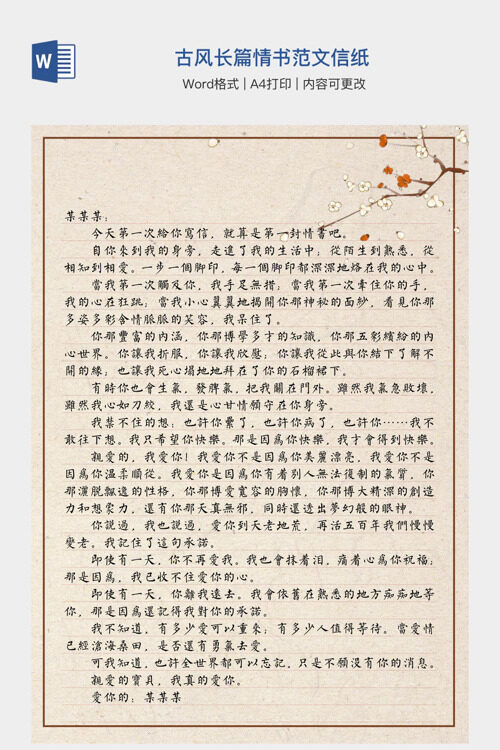 W
古风长篇情书范文信纸
Word格式 | A4打印 | 内容可更改
某某某:
今天第一次給你寫信，就算是第一封情書吧。
自你來到我的身旁，走進了我的生活中；從陌生到熟悉，從
相知到相愛。一步一個腳印，每一個腳印都深深地烙在我的心中。
當我第一次觸及你，我手足無措；當我第一次牽住你的手，
我的心在狂跳；當我小心翼翼地揭開你那神秘的面紗，看見你那
多姿多彩含情脈脈的笑容，我呆住了。
你那豐富的內涵，你那博學多才的知識，你那五彩繽紛的內
心世界。你讓我折服，你讓我欣慰；你讓我從此與你結下了解不
開的緣；也讓我死心塌地地拜在了你的石榴裙下。
有時你也會生氣，發脾氣，把我關在門外。雖然我氣急敗壞，
雖然我心如刀絞，我還是心甘情願守在你身旁。
我禁不住的想：也許你累了，也許你病了，也許你……我不
敢往下想。我只希望你快樂。那是因爲你快樂，我才會得到快樂。
親愛的，我愛你！我愛你不是因爲你美麗漂亮，我愛你不是
因爲你溫柔順從。我愛你是因爲你有着別人無法復制的氣質，你
那灑脫飄逸的性格，你那博愛寬容的胸懷，你那博大精深的創造
力和想象力，還有你那天真無邪，同時還透出夢幻般的眼神。
你說過，我也說過，愛你到天老地荒，再活五百年我們慢慢
變老。我記住了這句承諾。
即使有一天，你不再愛我。我也會抹着泪，痛着心爲你祝福；
那是因爲，我已收不住愛你的心。
即使有一天，你離我遠去。我會依舊在熟悉的地方痴痴地等
你，那是因爲還記得我對你的承諾。
我不知道，有多少愛可以重來；有多少人值得等待。當愛情
已經滄海桑田，是否還有勇氣去愛。
可我知道，也許全世界都可以忘記，只是不願沒有你的消息。
親愛的寶貝，我真的愛你。
愛你的：某某某